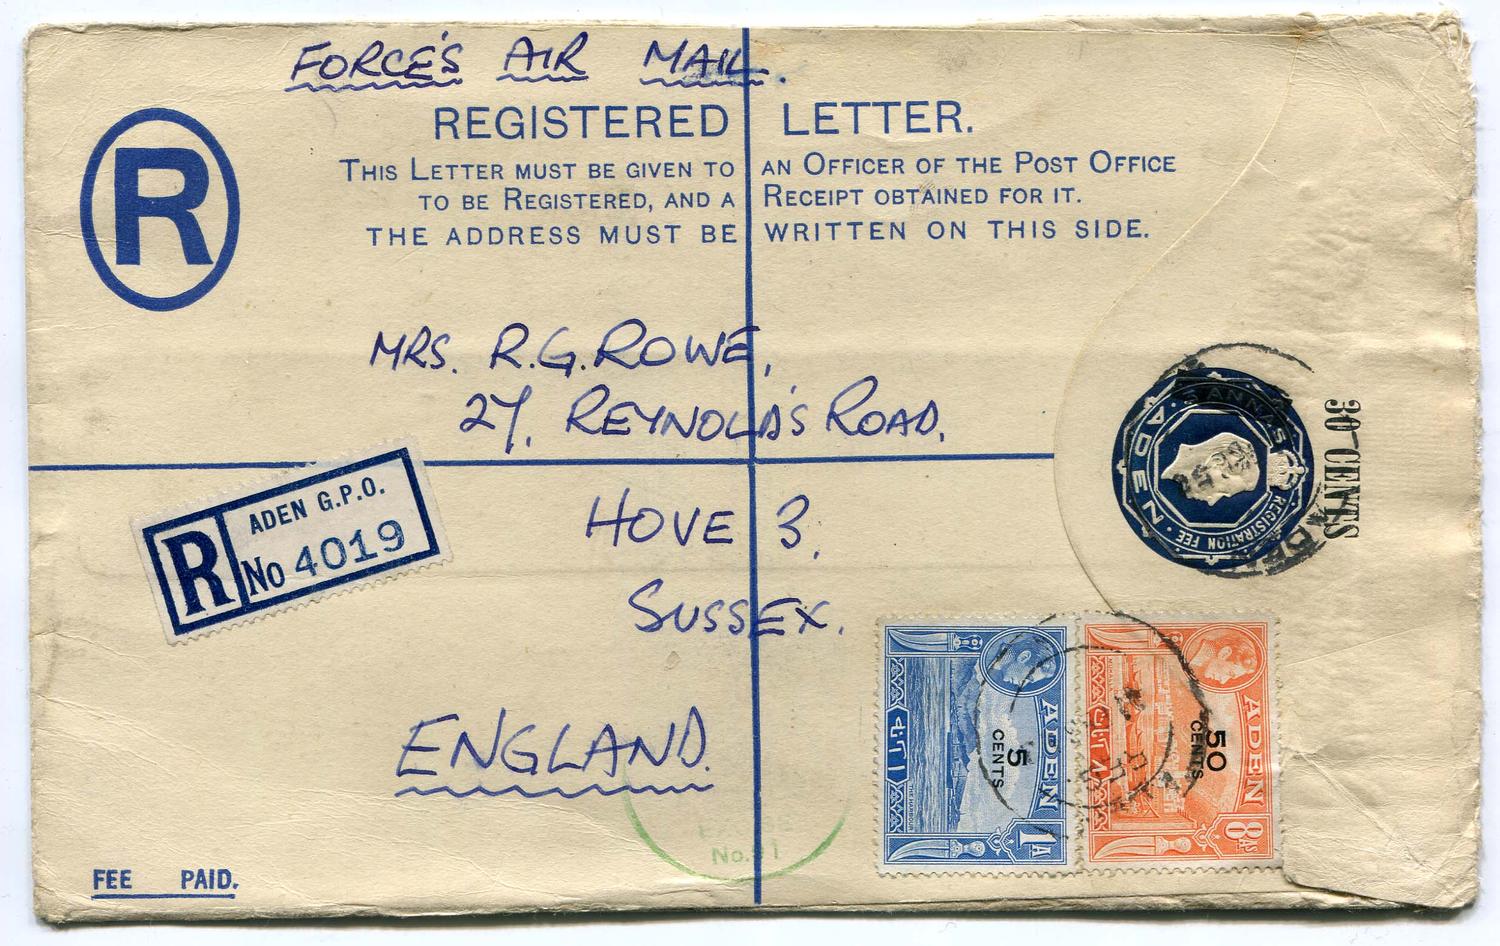 FORCE'S AIR MAIL.
REGISTERED LETTER.
THIS LETTER MUST BE GIVEN TO AN OFFICER OF THE POST OFFICE
TO BE REGISTERED, AND A RECEIPT OBTAINED FOR IT.
THE ADDRESS MUST BE WRITTEN ON THIS SIDE.
R
MRS. R.G. ROWE,
27, REYNOLD'S ROAD,
HOVE 3,
SUSSEX.
ENGLAND.
R
ADEN G.P.O.
No 4019
ADEN
ANNAS
REGISTRATION FEE
30 CENTS
ADEN
5
CENTS
THE HARBOUR
1A
ADEN
50
CENTS
8As
No.
FEE PAID.